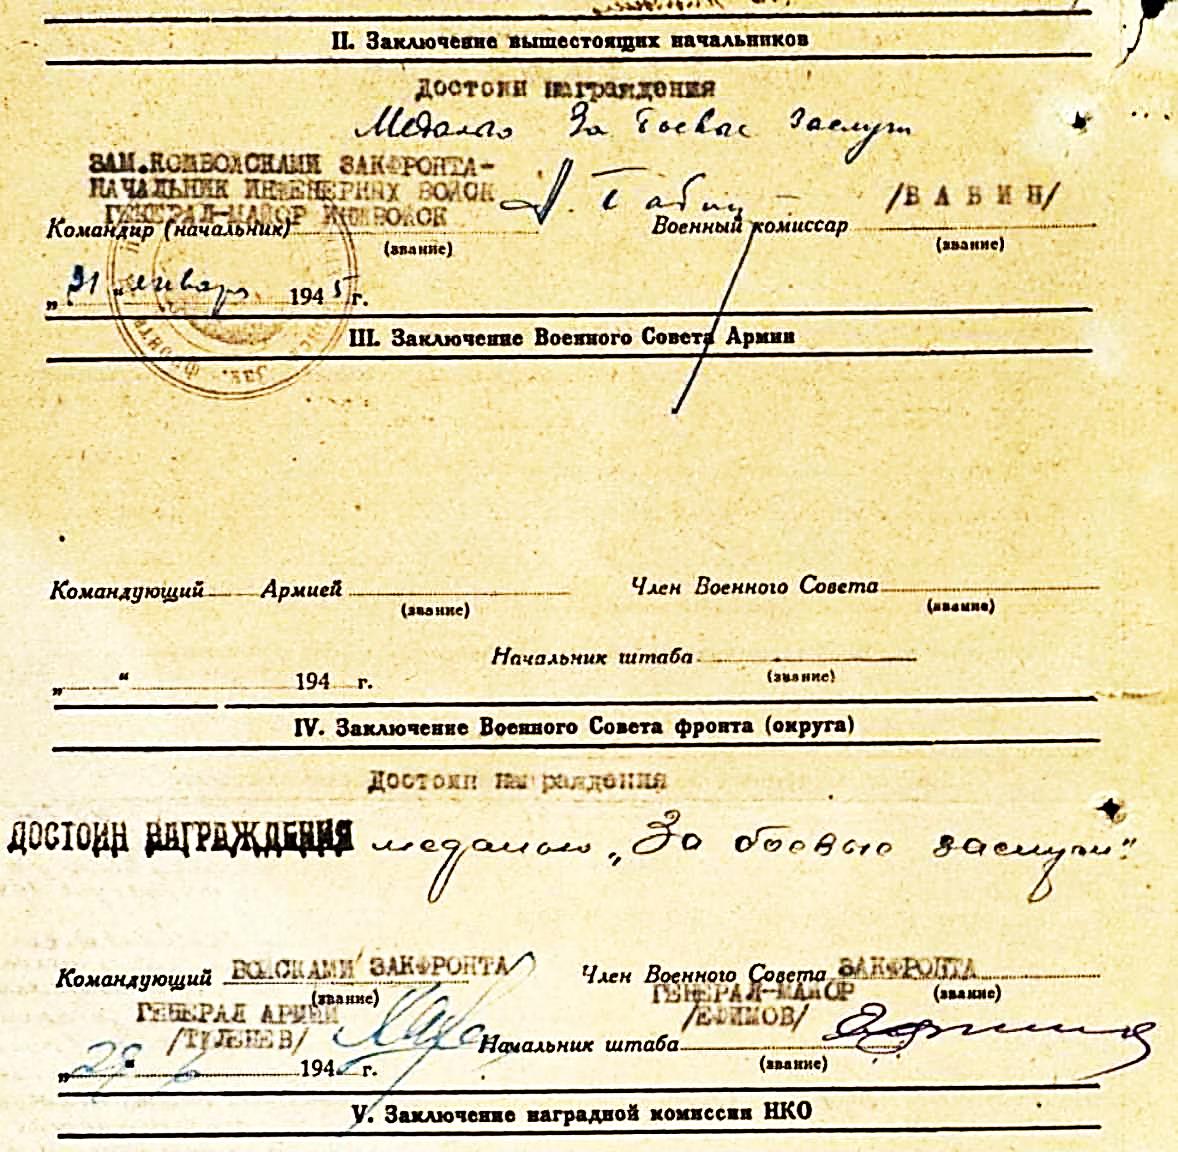 II. Заключение вышестоящих начальников
Достоин награждения
Медалью За боевые заслуги
ЗАМ.КОМВОЙСКАМИ ЗАКФРОНТА-
НАЧАЛЬНИК ИНЖЕНЕРНЫХ ВОЙСК
ГЕНЕРАЛ-МАЙОР ИНЖВОЙСК
/БАБИН/
Командир (начальник) Военный комиссар
(звание) (звание)
„31" января 1945 г.
III. Заключение Военного Совета Армии
Командующий Армией Член Военного Совета
(звание) (звание)
Начальник штаба
(звание)
„ " 194 г.
IV. Заключение Военного Совета фронта (округа)
Достоин награждения
ДОСТОИН НАГРАЖДЕНИЯ медалью „За боевые заслуги"
Командующий ВОЙСКАМИ ЗАКФРОНТА Член Военного Совета ЗАКФРОНТА
(звание) ГЕНЕРАЛ-МАЙОР (звание)
ГЕНЕРАЛ АРМИИ /ЕФИМОВ/
/ТЮЛЕНЕВ/ Начальник штаба
(звание)
„29" 194 г.
V. Заключение наградной комиссии НКО